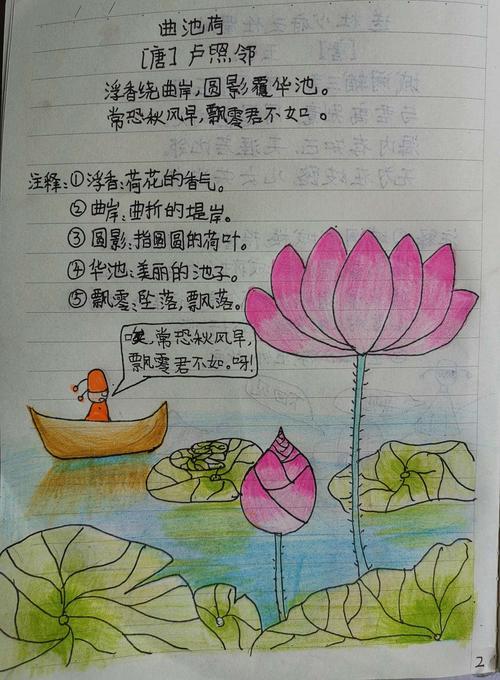 曲池荷
[唐]卢照邻
浮香绕曲岸,圆影覆华池。
常恐秋风早,飘零君不如。
注释:①浮香:荷花的香气。
②曲岸:曲折的堤岸。
③圆影:指圆圆的荷叶。
④华池:美丽的池子。
⑤飘零:坠落,飘落。
唉,常恐秋风早,
飘零君不如。呀!
2